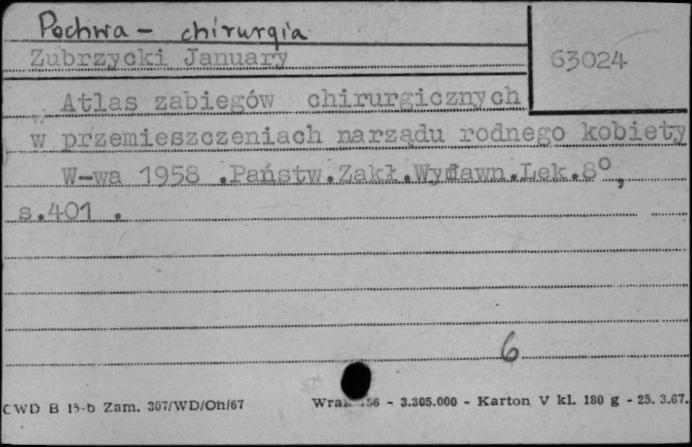 Pochwa - chirurgia
Zubrzycki January
63024
Atlas zabiegów chirurgicznych
w przemieszczeniach narządu rodnego kobiety
W-wa 1958 .Państw.Zakł.Wydawn.Lek.8°,
s.401 .
6
CWD B 15-b Zam. 307/WD/Oh/67 56 - 3.305.000 - Karton V kl. 180 g - 25. 3.67.